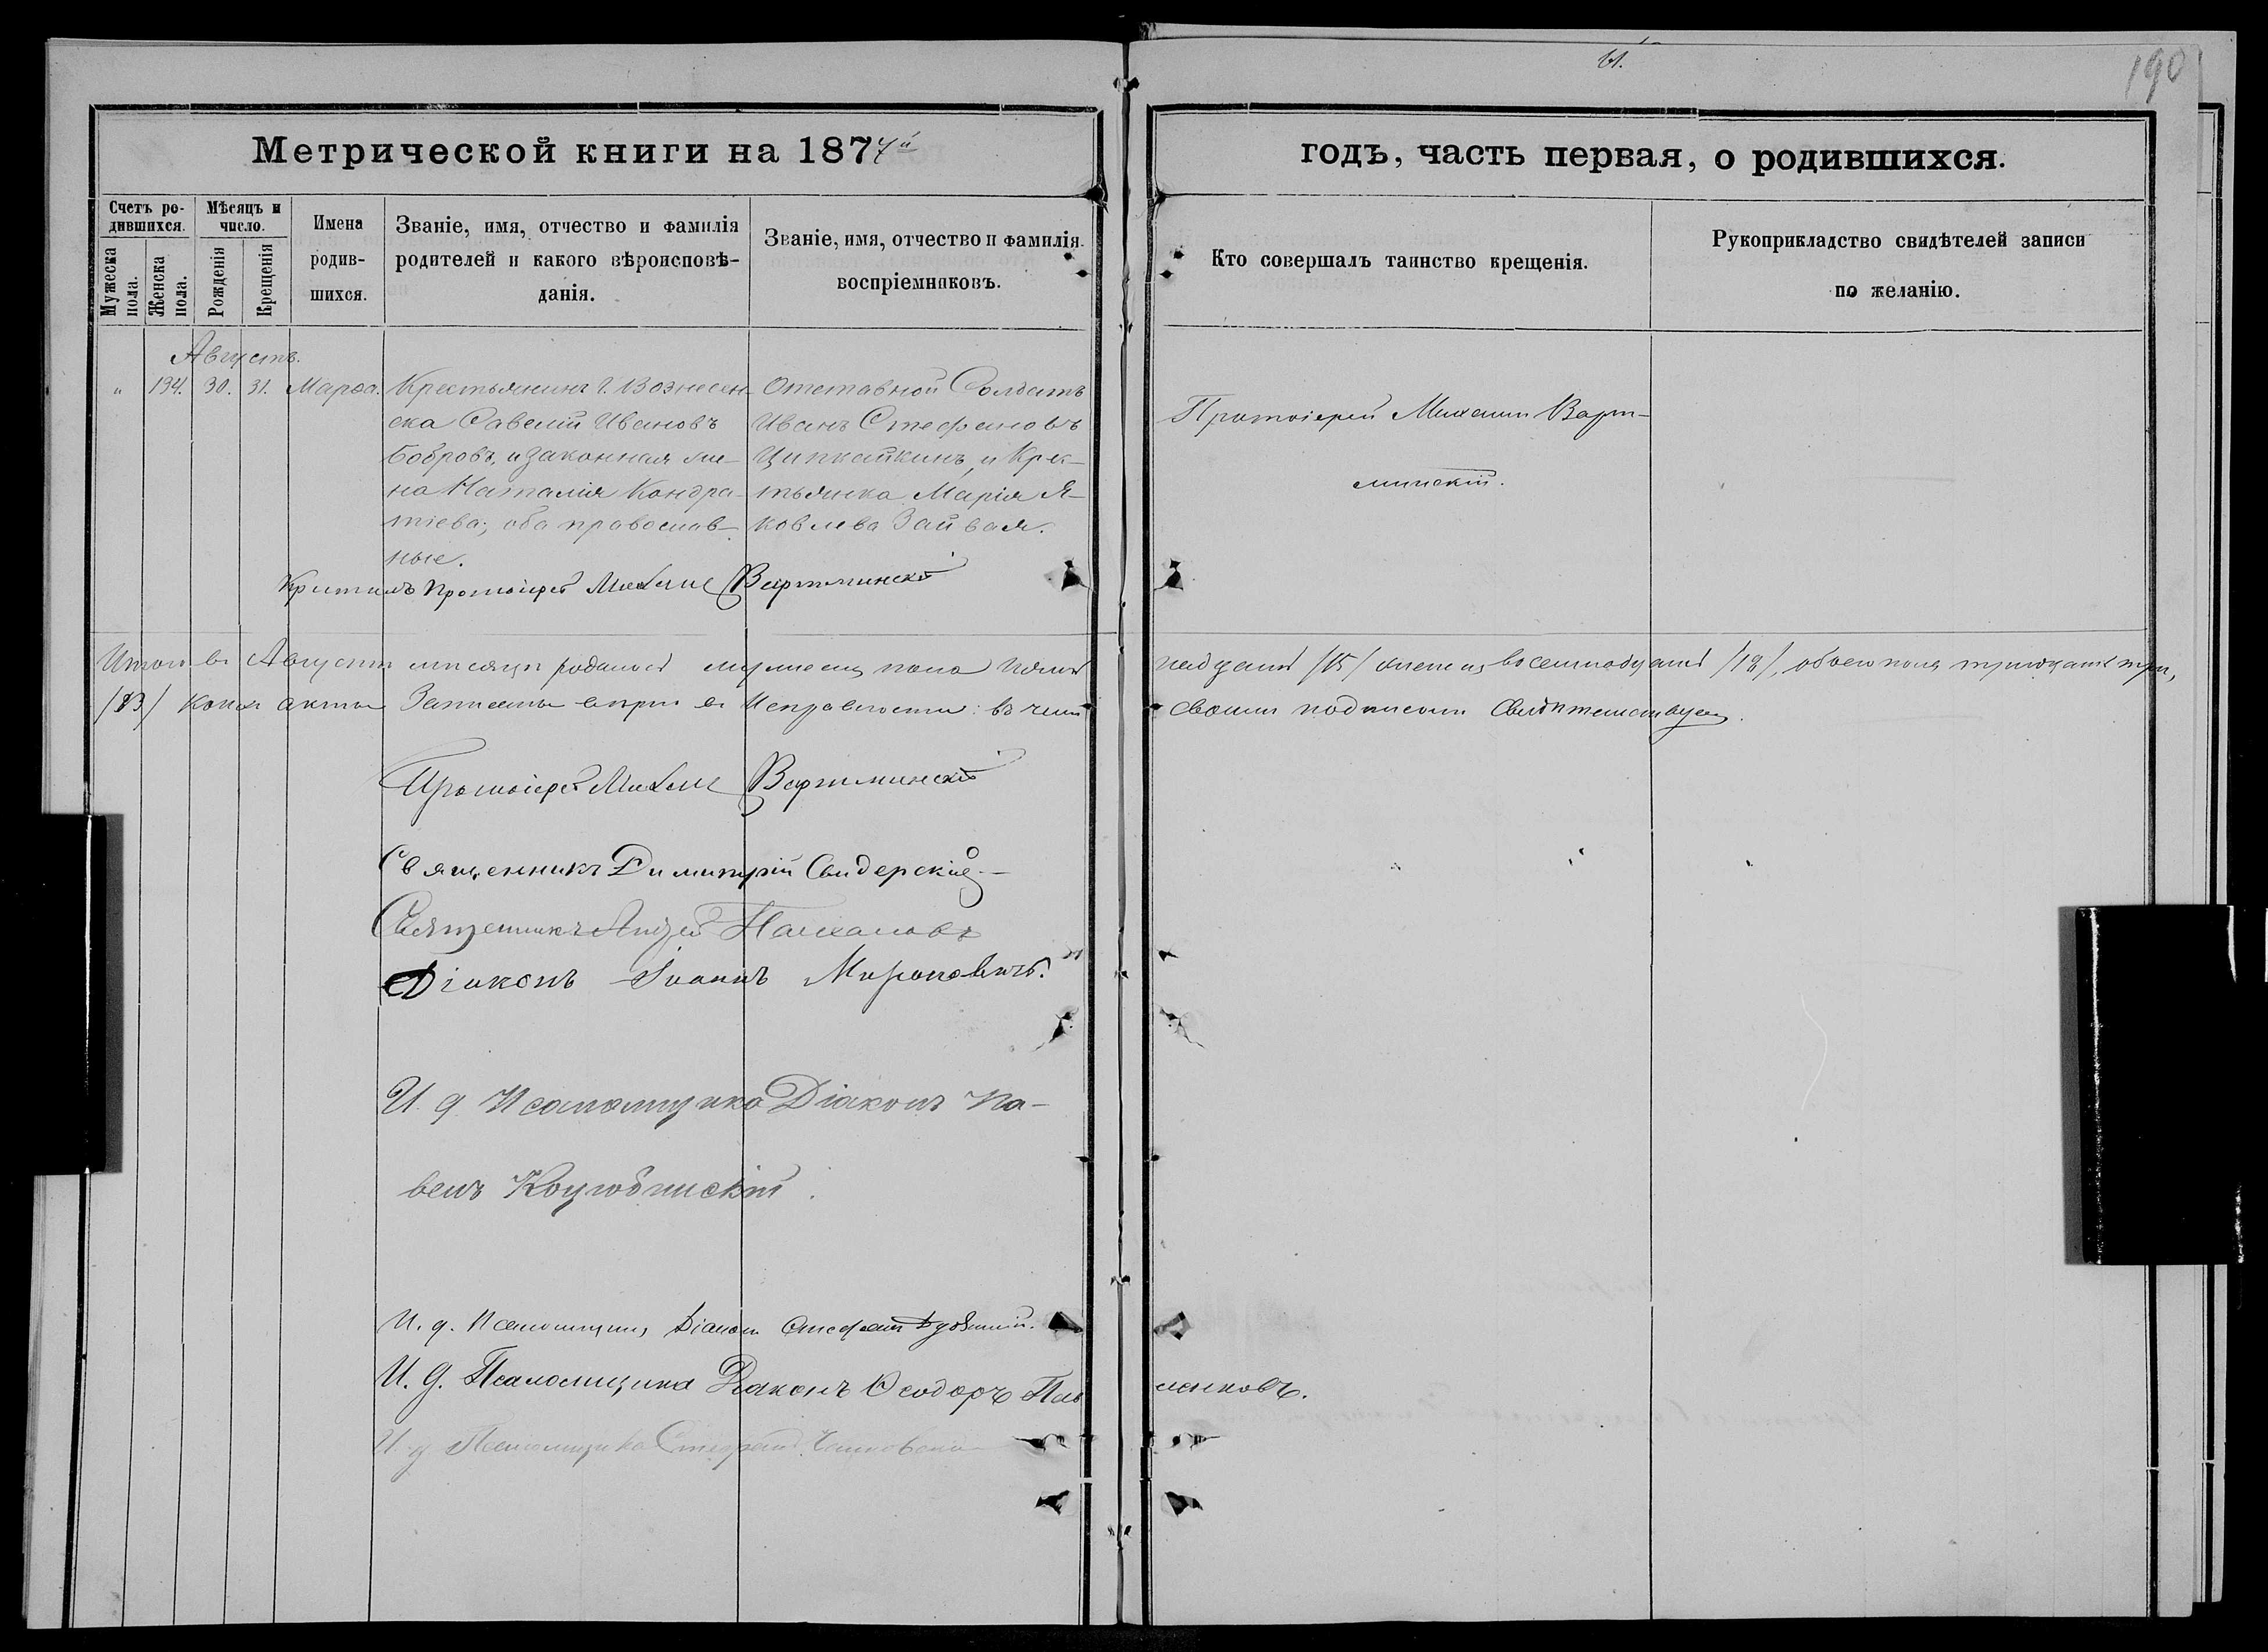 190
Метрической книги на 1877й
годъ, часть первая, о родившихся.
Счетъ родившихся.
Мужеска пола.
Женска пола.
Мѣсяцъ и число.
Рожденія
Крещенія
Имена родив-
шихся.
Званіе, имя, отчество и фамилія
родителей и какого вѣроисповѣ-
данія.
Званіе, имя, отчество и фамилія
воспріемниковъ.
Кто совершалъ таинство крещенія.
Рукоприкладство свидѣтелей записи
по желанію.
Августъ.
" 194. 30. 31. Марѳа.
Крестьянинъ г. Вознесен-
ска Савелій Ивановъ
Бобровъ, и законная же-
на Наталія Кондра-
тіева; оба православ-
ные.
Отставной Солдатъ
Иванъ Стефановъ
Ципкайкинъ, и Кре-
стьянка Марія Я-
ковлева Зайвая.
Протоіерей Михаилъ Варт-
минскій.
Крестилъ Протоіерей Михаилъ Вартминскій
Итого въ Августѣ мѣсяцѣ родилось мужеска пола пят-
надцать /15/ женска восемнадцать /18/, обоего пола тридцать три,
/33/ акты Записаны вѣрно въ исправности: въ чемъ
своими подписями свидѣтельствуемъ.
Протоіерей Михаилъ Вартминскій
Священникъ Димитрій Свидерскій.
Священникъ Андрей Пасхаловъ
Діаконъ Іоаннъ Мироновичъ.
И. д. Псаломщика Діаконъ Па-
велъ Коцюбинскій.
И. д. Псаломщика Діаконъ Стефанъ
И. д. Псаломщика Діаконъ Ѳеодоръ Павленковъ.
И. д. Псаломщика Стефанъ